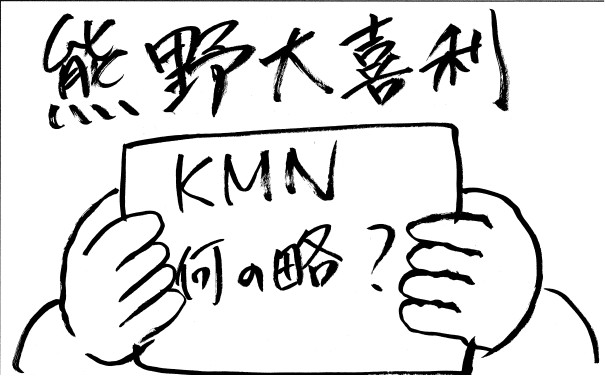 熊野大喜利
KMN
何の略？